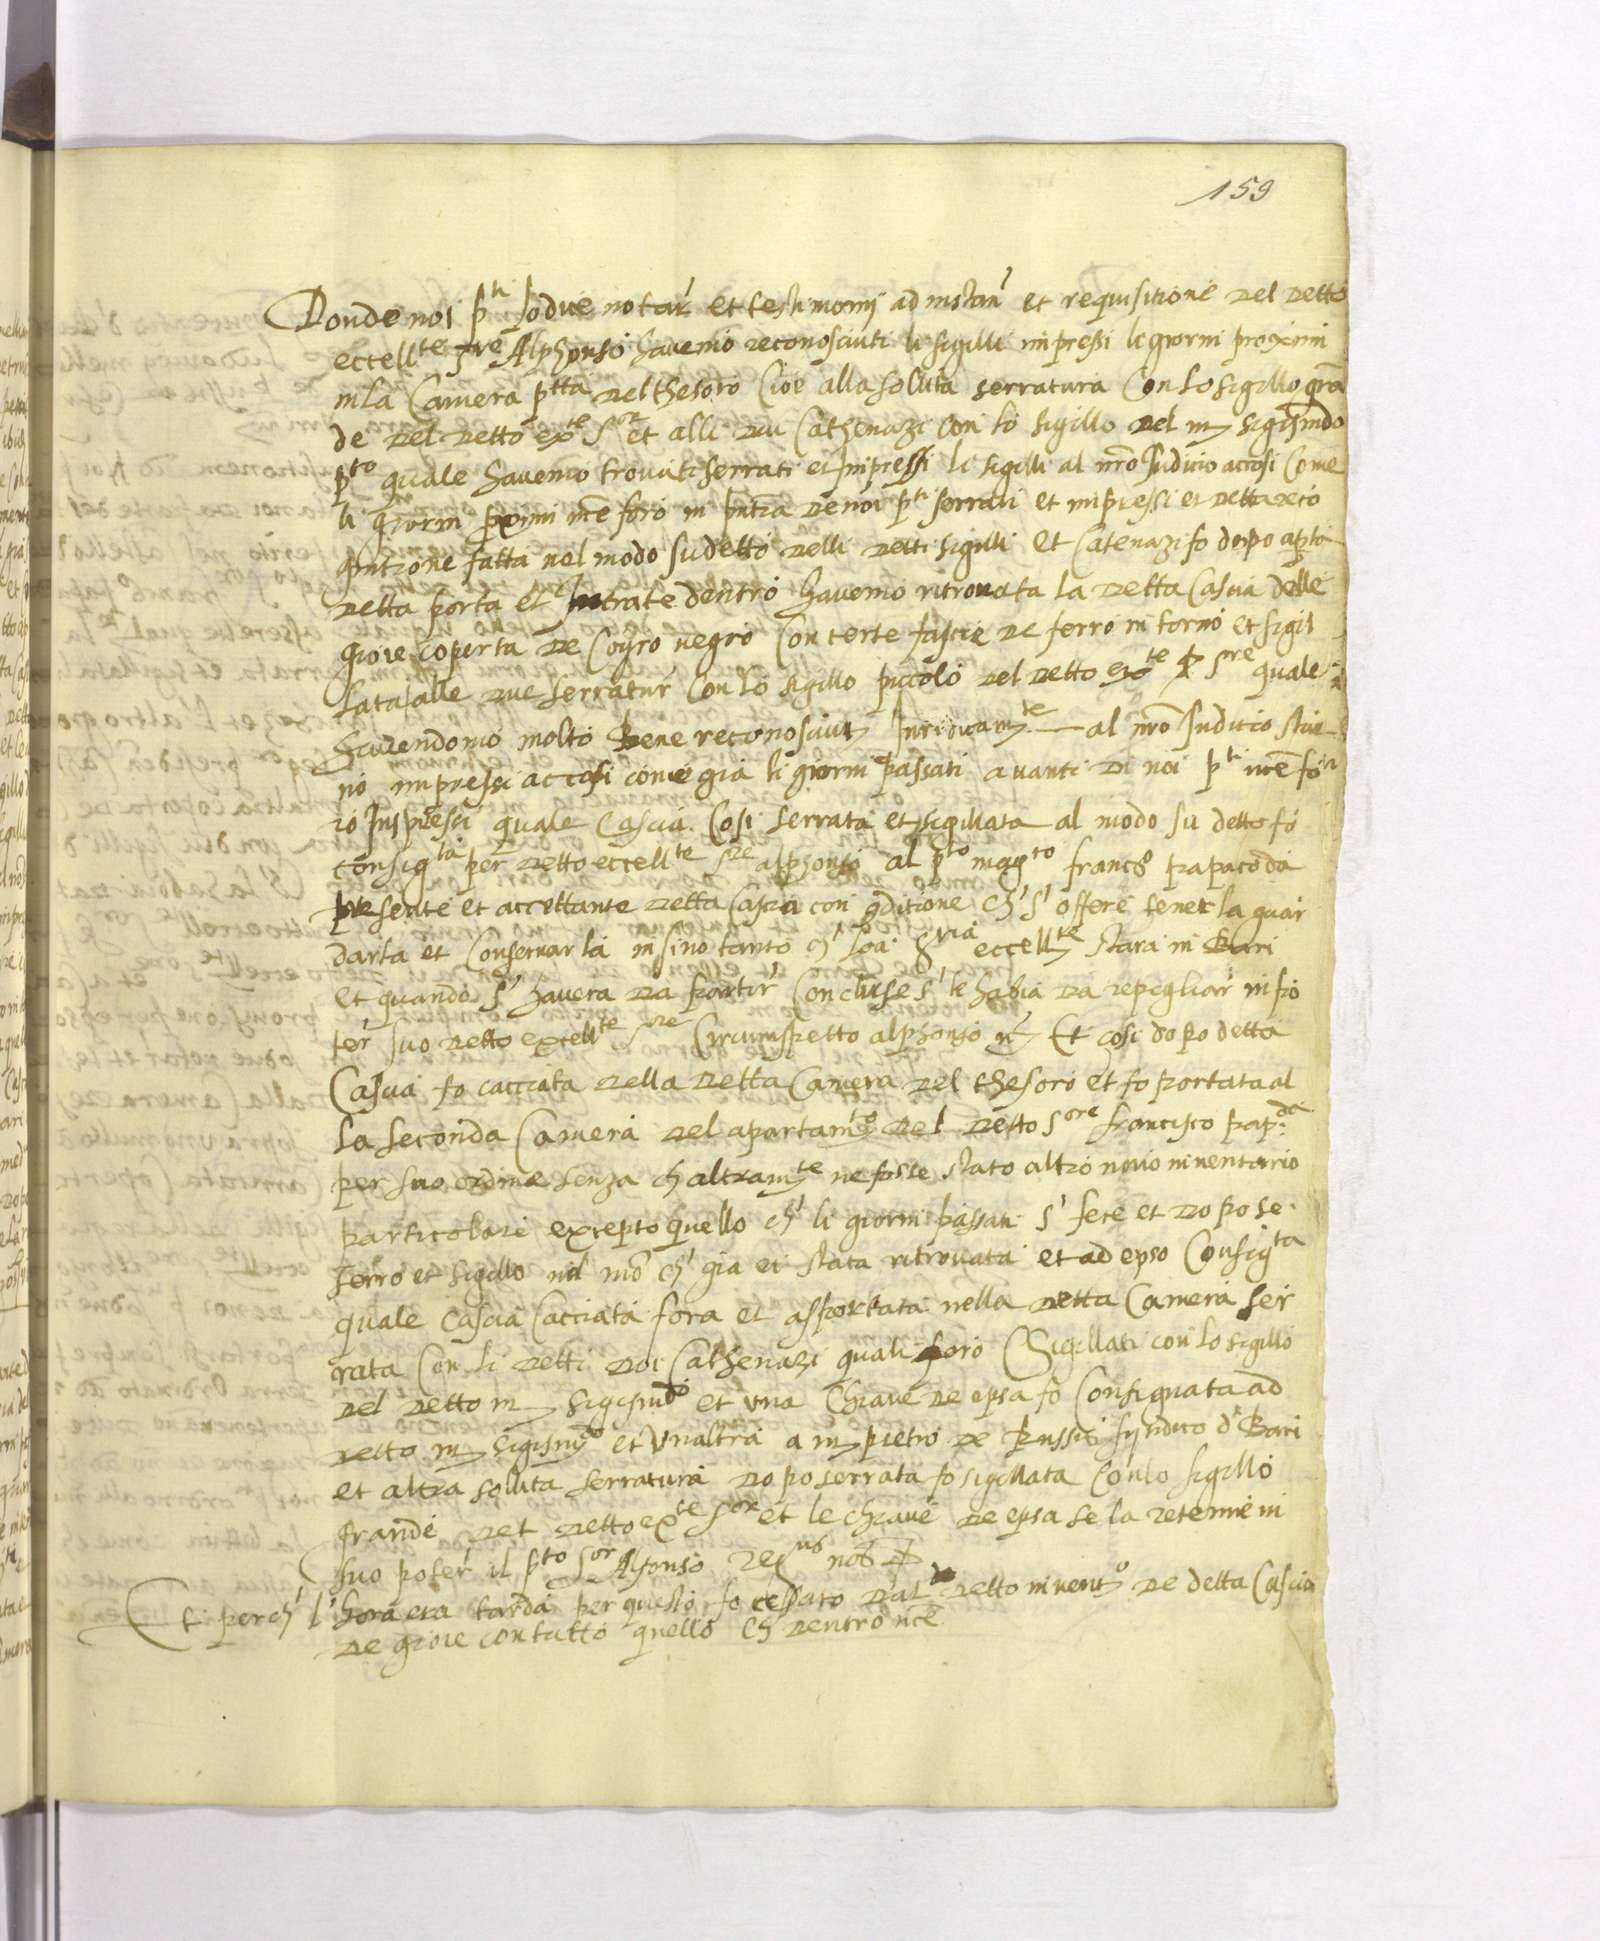 159
Donde noi p^ti Iodice notar et testimonij ad instan^ et requisitione del detto
eccell^te s^re Alphonso havemo reconosciuti li sigilli impressi li giorni proximi
in la Camera p^tta del thesoro Cioe alla soluta serratura Con lo sigillo gra
de del detto ex^te s^or et alli dui Cathenazi con lo sigillo del m^ sigismdo
p^to quale havemo trovati serrati et Impressi li sigilli al nro Iudicio accosi Come
li giorni proximi foro in pntia de noi p^ti serrati et impressi et detta reco
gnitione fatta nel modo sudetto delli detti sigilli et Catenazi fo dopo apta
detta porta et Intrate dentro havemo ritrovata la detta Cascia delle
gioie coperta de Coyro negro Con certe fascie de ferro in torno et sigil
lata alle due serratur Con lo sigillo piccolo del detto ex^te s^re quale
havendomo molto bene reconosciuti al nro Iudicio stav
no impressi accosi come gia li giorni passati avanti di noi p^ti fo
ro Inpressi quale Cascia Cosi serrata et sigillata al modo su detto fo
consig^ta per detto eccell^te s^re alphonso al p^to mag^co franc^o papacoda
presente et accettante detta Cascia con conditione ch s^ offere tener la guar
darla et Conservar la in sino tanto ch eccell^te stara in Bari
et quando s^ havera da partir Concluse s^ le habia da repegliar in po
ter suo detto excell^te s^re Circumspetto alphonso Et cosi dopo detta
Cascia fo cacciata della detta Camera del thesoro et fo portata al
la seconda Camera del apartam^to del detto s^ore francisco pap^da
per suo ordine senza ch altram^te ne fosse stato altro novo inventario
particolare excepto quello ch li giorni passati s^ fece et dopo se
serro et sigillo nel mo ch gia ei stata ritrovata et ad epso Consig^ta
quale Cascia Cacciata fora et asportata nella detta Camera ser
rata Con li detti doi Cathenazi quali foro Sigillati con lo sigillo
del detto m^ sigismdo et una Chiave de epsa fo Consignata ad
detto m^ sigism^do et Unaltra a m^ pietro de Russis syndico d^ Bari
et altra soluta serratura dopo serrata fo sigillata Con lo sigillo
grande del detto ex^te s^or et le chiave de epsa se la retenne in
suo poter il p^to s^or Alfonso
Et perch l^ hora era tarda per questo fo cessato dal detto invent^o de detta Cascia
de gioie con tutto quello ch dentro nce